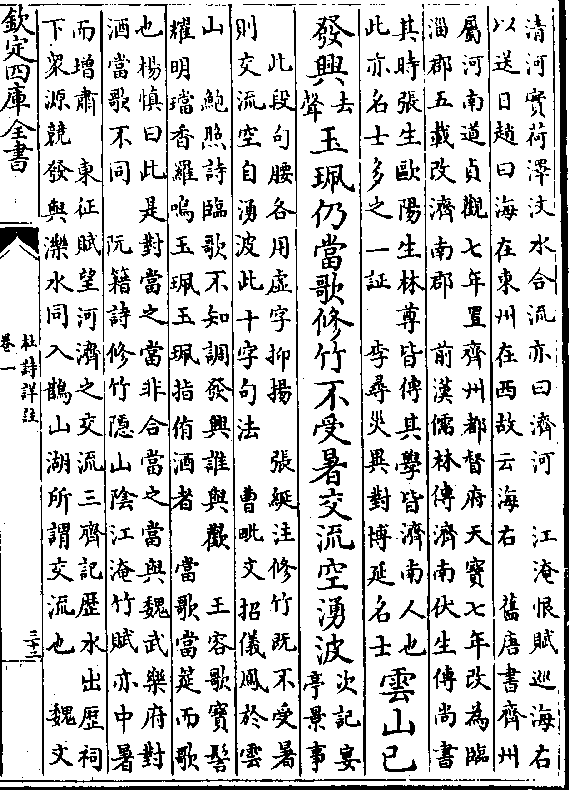 清河實荷澤汶水合流亦曰濟河　江淹恨賦巡海右
以送日趙曰海在東州在西故云海右　舊唐書齊州
屬河南道貞觀七年置齊州都督府天寶七年改為臨
淄郡五載改濟南郡　前漢儒林傳濟南伏生傳尚書
其時張生歐陽生林尊皆傳其學皆濟南人也
此亦名士多之一証　李尋災異對博延名士
雲山已
發興去聲玉珮仍當歌修竹不受暑交流空湧波次記宴亭景事
此段句腰各用虛字抑揚　張綖注修竹既不受暑
則交流空自湧波此十字句法　曹毗文招儀鳳於雲
山　鮑照詩臨歌不知調發興誰與歡　王容歌寶髻
耀明璫香羅鳴玉珮玉珮指侑酒者　當歌當筵而歌
也楊慎曰此是對當之當非合當之當與魏武樂府對
酒當歌不同　阮籍詩修竹隱山陰江淹竹賦亦中暑
而增肅　東征賦望河濟之交流三齊記歷水出歷祠
下衆源競發與濼水同入鵲山湖所謂交流也　魏文
欽定四庫全書
杜詩詳註
卷一
三十二